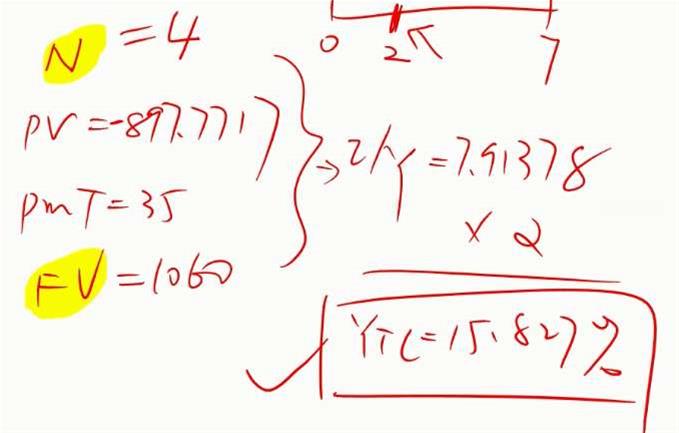 N = 4
0 2 7
PV = -897.7717
I/Y = 7.91378
PmT = 35
x 2
FV = 1060
YTC = 15.827%